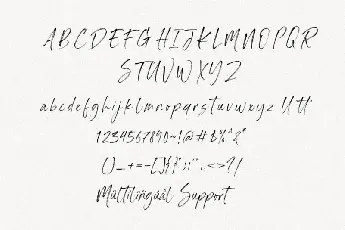 ABCDEFGHIJKLMNOPQR
STUVWXYZ
abcdefghijklmnopqrstuvwxyz
1234567890~!@#$%^&*
()_+=-[]{};:'",.<>?/
Multilingual Support